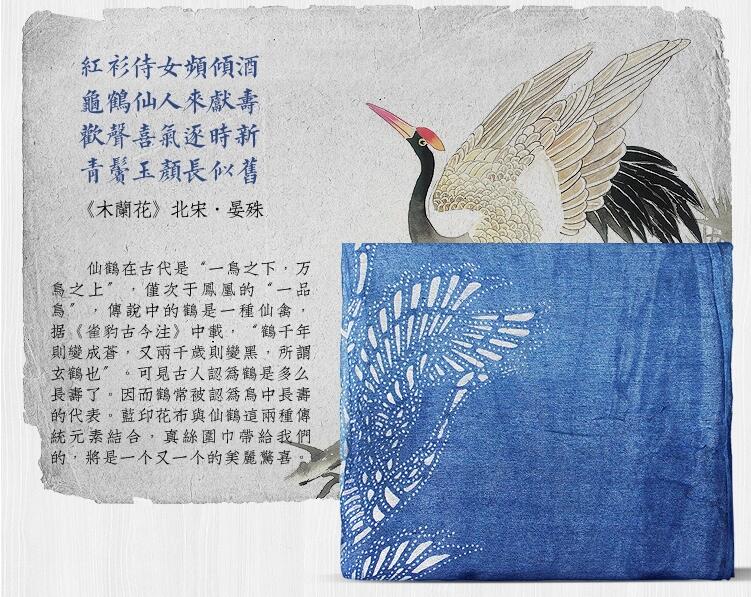 紅衫侍女頻傾酒
龜鶴仙人來獻壽
歡聲喜氣逐時新
青鬢玉顏長似舊
《木蘭花》北宋·晏殊
仙鶴在古代是“一鳥之下，万
鳥之上”，僅次于鳳凰的“一品
鳥”，傳說中的鶴是一種仙禽，
据《雀豹古今注》中載，“鶴千年
則變成蒼，又兩千歲則變黑，所謂
玄鶴也”。可見古人認爲鶴是多么
長壽了。因而鶴常被認爲鳥中長壽
的代表。藍印花布與仙鶴這兩種傳
統元素結合，真絲圍巾帶給我們
的，將是一个又一个的美麗驚喜。